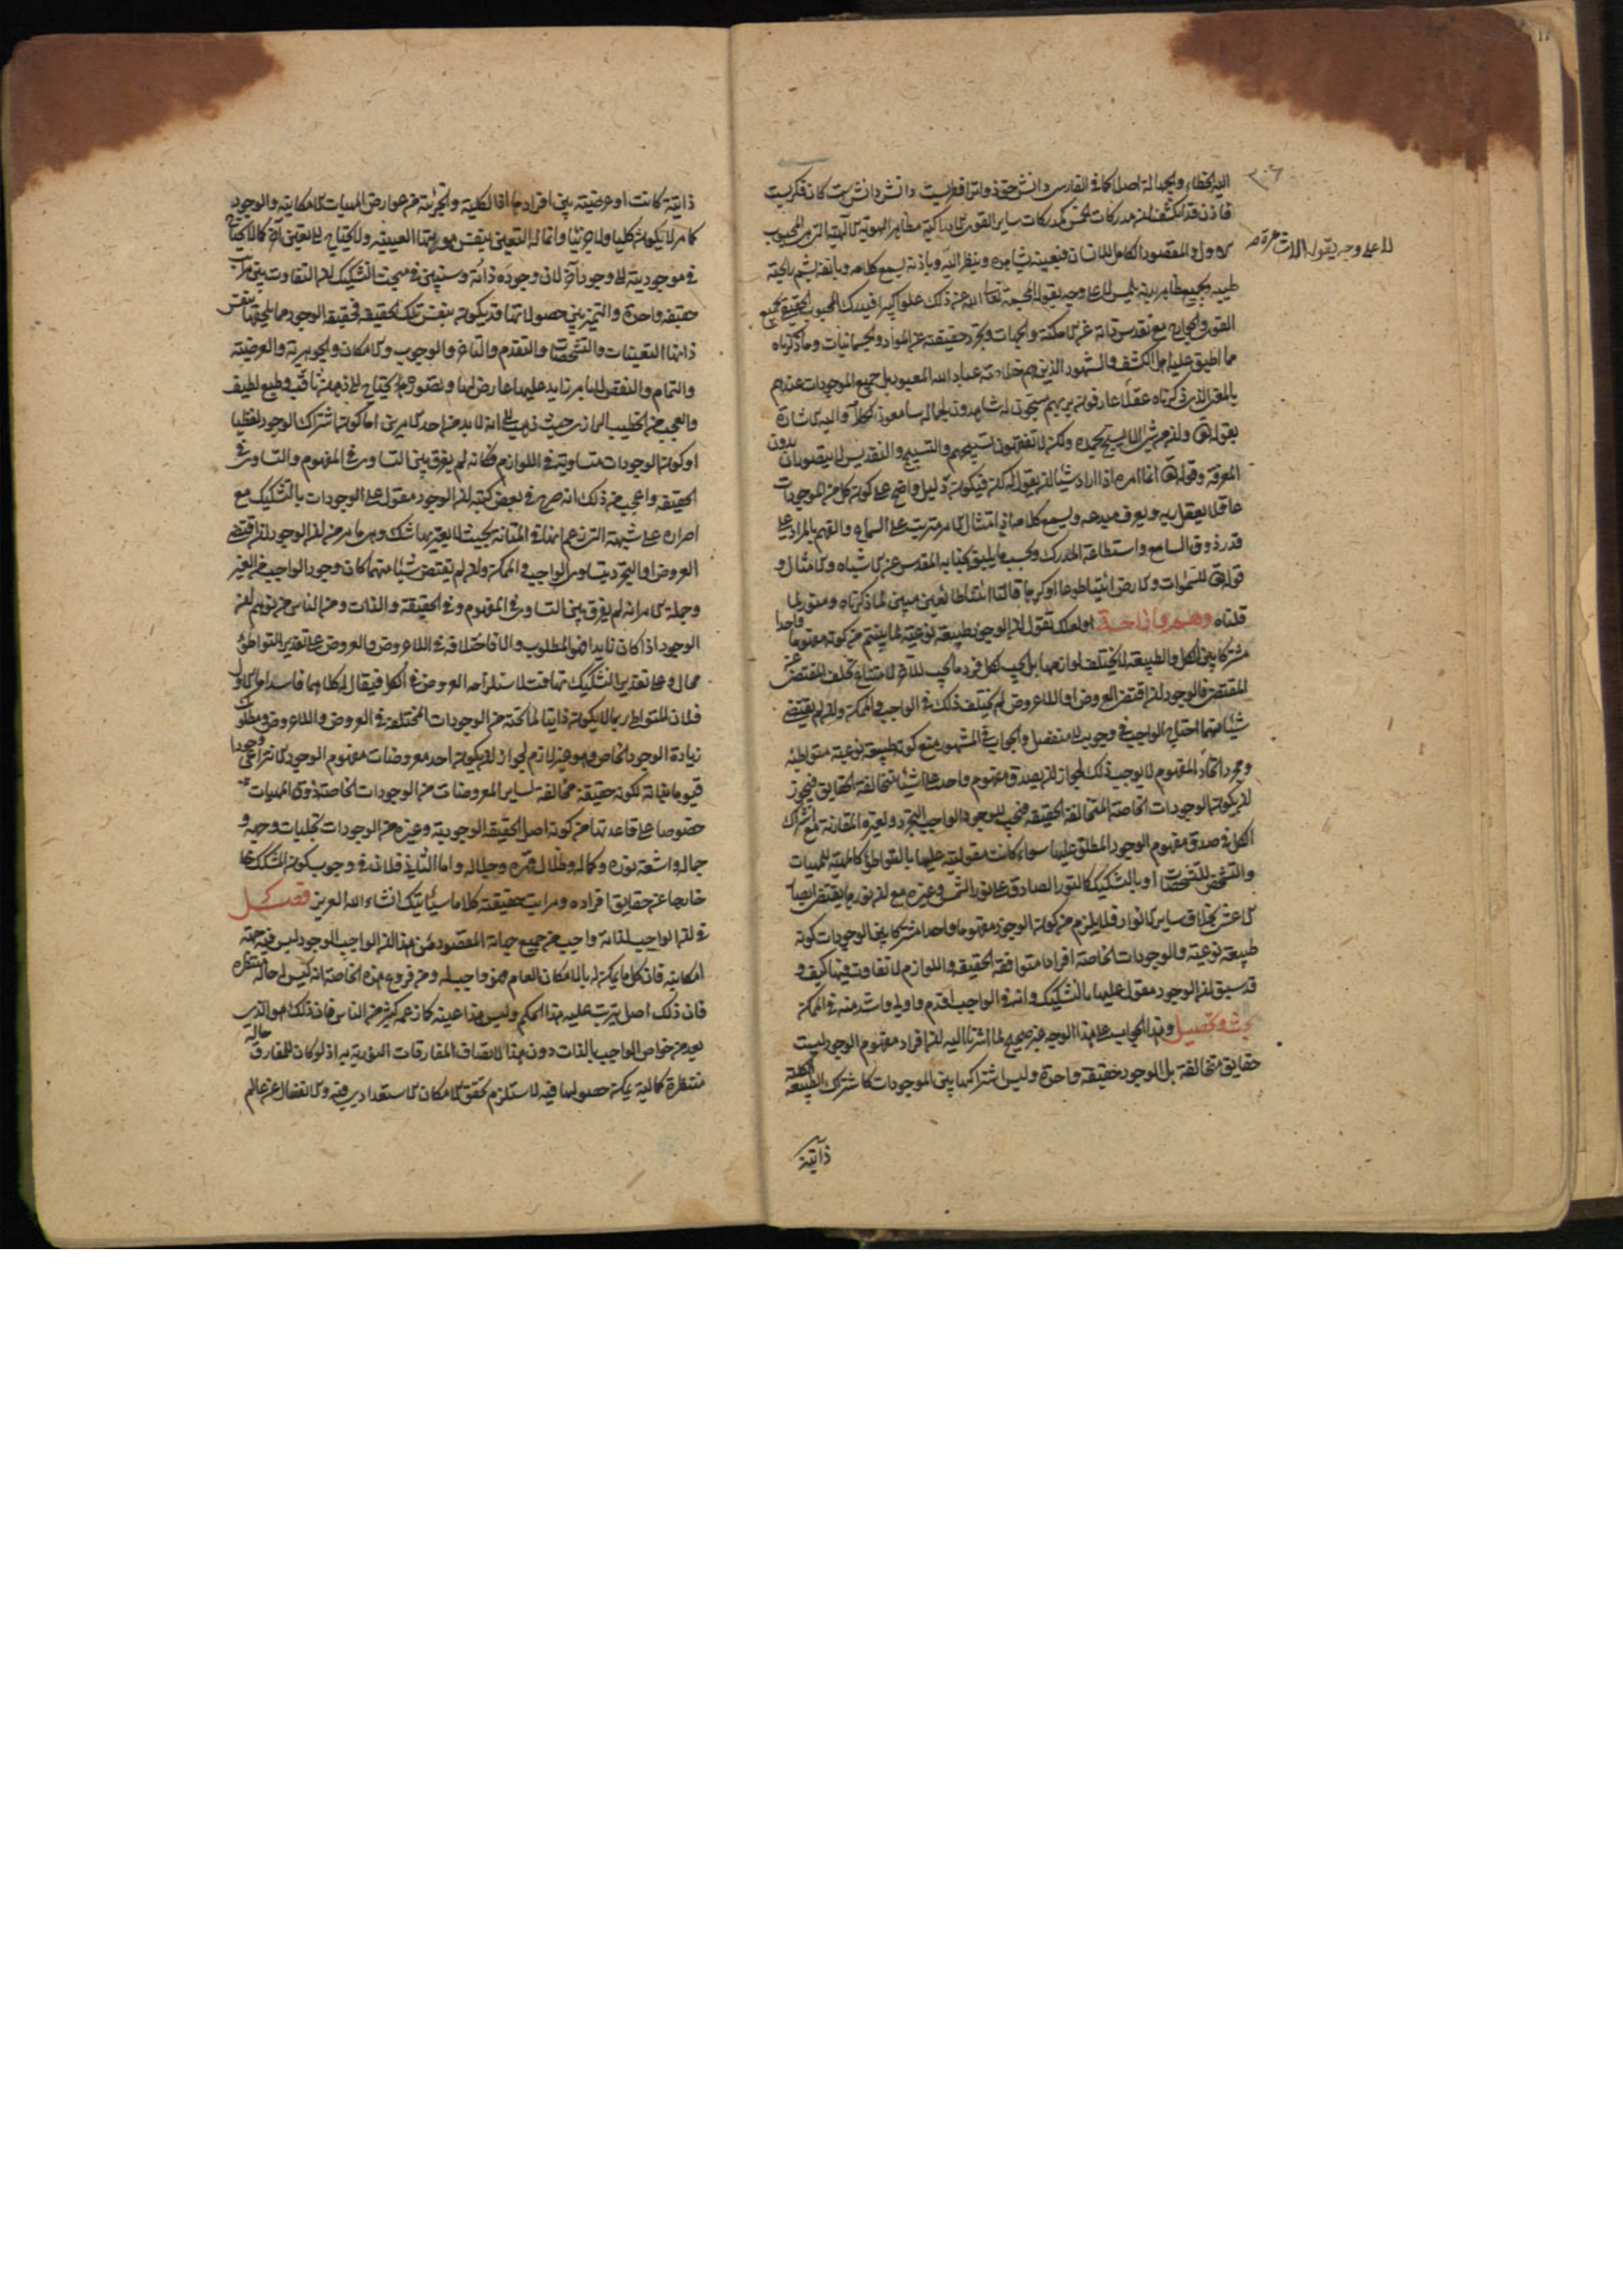 قاذن قد انكشف ان مدركات الخمس كمدركات ساير القوى الادراكية مظاهر الهوية الالهية التي هي المحبوب
الاول والمقصود الكامل للانسان فبعينه يشاهده وينظر اليه وباذنه يسمع كلامه وبانفه يشم رايحة
طيبه وبجميع ظاهر بدنه يلمس لا على وجه يقوله المجسمة تعالى الله عن ذلك علوا كبيرا فيدرك المحبوب الحقيقي بجميع
القوى والجوارح مع تقدس ذاته عن الامكنة والجهات وتجرد حقيقته عن المواد والجسمانيات وما ذكرناه
مما اطبق عليه اهل الكشف والشهود الذين هم خلاصة عباد الله المعبود بل جميع الموجودات عندهم
بالمعنى الذى ذكرناه عقلاء عارفون بربهم مسبحون له شاهدون لجماله سامعون لكلامه واليه الاشارة
بقوله وان من شئ الا يسبح بحمده ولكن لا تفقهون تسبيحهم والتسبيح والتقديس لا يتصوران بدون
المعرفة وقوله انما امره اذا اراد شيئا ان يقول له كن فيكون دليل واضح على كون كل من الموجودات
عاقلا يعقل ربه ويعرف مبدعه ويسمع كلامه اذ امتثال الامر مترتب على السماع والفهم بالمراد على
قدر ذوق السامع واستطاعة المدرك وبحسب ما يليق بجنابه المقدس عن الاشباه والامثال و
قوله للسموات والارض ائتيا طوعا او كرها قالتا اتينا طائعين مبين لما ذكرناه ومنور لما
قلناه وهم وازاحة ولعلك تقول ان الوجود طبيعة نوعية لما بينتم من كونه مفهوما واحدا
مشتركا بين الكل والطبيعة لا يختلف لوازمها بل يجب لكل فرد ما يجب للاخر لامتناع تخلف المقتضى عن
المقتضى فالوجود ان اقتضى العروض او اللاعروض لم يختلف ذلك في الواجب والممكن وان لم يقتض
شيئا منهما احتاج الواجب في وجوبه الى منفصل والجواب في المشهور منع كونه طبيعة نوعية متواطئة
ومجرد اتحاد المفهوم لا يوجب ذلك لجواز ان يصدق مفهوم واحد على اشياء متخالفة الحقايق فيجوز
ان يكون الوجودات الخاصة متخالفة الحقيقة فيجب للوجود الواجب التجرد ولغيره المقارنة مع اشتراك
الكل في صدق مفهوم الوجود المطلق عليها سواء كانت مقوليته عليها بالتواطؤ كالماهية للماهيات
والتشخص للتشخصات او بالتشكيك كالنور الصادق على نور الشمس وغيره مع ان نورها يقتضى ابصار
الاعشى بخلاف ساير الانوار فلا يلزم من كون الوجود مفهوما واحدا مشتركا بين الوجودات كونه
طبيعة نوعية والوجودات الخاصة افرادا متوافقة الحقيقة واللوازم لا تفاوت فيها كيف و
قد سبق ان الوجود مقول عليها بالتشكيك وانه في الواجب اقدم واولى واشد منه في الممكن
بحث وتحصيل وهذا الجواب على هذا الوجه غير صحيح لما اشرنا اليه ان افراد مفهوم الوجود ليست
حقايق متخالفة بل الوجود حقيقة واحدة وليس اشتراكها بين الموجودات كاشتراك الطبيعة الكلية
ذاتية
لا على وجه يقوله
ذاتية كانت او عرضية بين افرادها اذ الكلية والجزئية من عوارض الماهيات الامكانية والوجود
كما مر لا يكون كليا ولا جزئيا وانما له التعين بنفس هويتها العينية ولا يحتاج الى تعين اخر كما لا يحتاج
في موجوديته الى وجود اخر لان وجوده ذاته وسنبين في مبحث التشكيك ان التفاوت بين مراتب
حقيقة واحدة والتميز بين حصولاتها قد يكون بنفس تلك الحقيقة فحقيقة الوجود مما يلحقها بنفس
ذاتها التعينات والتشخصات والتقدم والتاخر والوجوب والامكان والجوهرية والعرضية
والتمام والنقص لا بامر زايد عليها عارض لها وتصور هذا يحتاج الى ذهن ثاقب وطبع لطيف
والعجب من الخطيب الرازى حيث ذهب الى انه لا بد من احد الامرين اما كون اشتراك الوجود لفظيا
او كون الوجودات متساوية في اللوازم فكانه لم يفرق بين التساوى في المفهوم والتساوى في
الحقيقة واعجب من ذلك انه صرح في بعض كتبه ان الوجود مقول على الوجودات بالتشكيك مع
اصراره على شبهته التي زعم انها في المتانة بحيث لا يعتريها شك وهى ما مر من ان الوجود ان اقتضى
العروض او التجرد يتساوى الواجب والممكن وان لم يقتض شيئا منهما كان وجود الواجب من الغير
وجملة الامر انه لم يفرق بين التساوى في المفهوم وفي الحقيقة والذات ومن الناس من توهم ان
الوجود اذا كان زايدا فهو المطلوب والا فاختلافه في اللاعروض والعروض على تقدير التواطؤ
محال وعلى تقدير التشكيك تهافت لاستلزامه العروض في الكل فيقال له كلاهما فاسد اما الاول
فلان المتواطى ربما لا يكون ذاتيا لما تحته من الوجودات المختلفة في العروض واللاعروض ومطلوبك
زيادة الوجود الخاص وهو غير لازم لجواز ان يكون احد معروضات مفهوم الوجود الانتزاعى وجودا
قيوما بذاته لكونه حقيقة مخالفة لساير المعروضات من الوجودات الخاصة لذوى الماهيات
خصوصا على قاعدتنا من كونه اصل الحقيقة الوجودية وغيره من الوجودات تجليات وجهه و
جماله واشعة نوره وكماله وظلال قهره وجلاله واما الثانى فلانه في وجوب كون المشكك
خارجا عن حقايق افراده ومراتب حقيقته كلاما سيأتيك انشاء الله العزيز فصل
في ان الواجب لذاته واجب من جميع جهاته المقصود من هذا ان الواجب الوجود ليس فيه جهة
امكانية فان كل ما يمكن له بالامكان العام فهو واجب له ومن فروع هذه الخاصة انه ليس له حالة منتظرة
فان ذلك اصل يترتب عليه هذا الحكم وليس هذا عينه كما زعمه كثير من الناس فان ذلك هو الذى
يعد من خواص الواجب بالذات دون هذا لاتصاف المفارقات النورية به اذ لو كان للمفارق حالة
منتظرة كمالية يمكن حصولها فيه لاستلزم تحقق الامكان الاستعدادى فيه والانفعال عن عالم